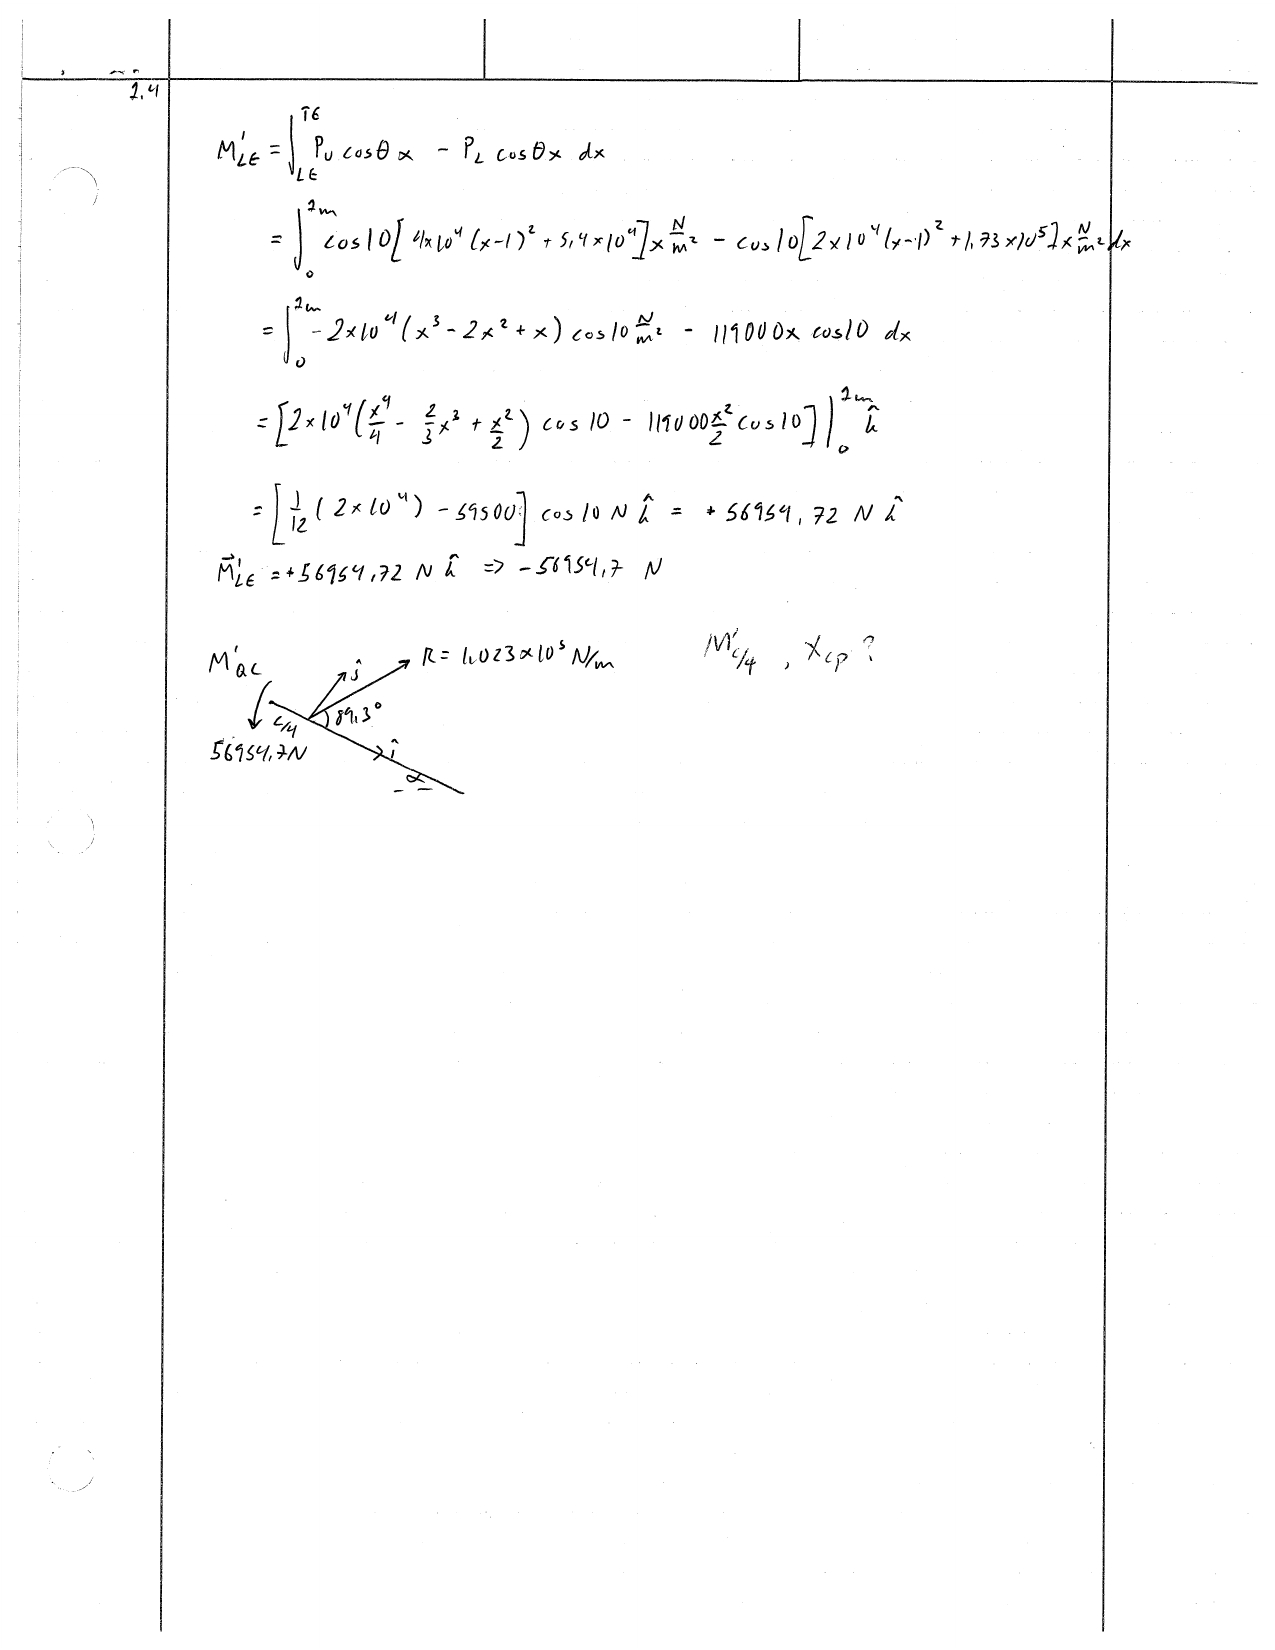 2.4
M'_LE = ∫_LE^TE P_U cosθ x - P_L cosθ x dx
= ∫_0^2m cos10[4×10^4 (x-1)^2 + 5,4×10^4] x N/m^2 - cos10[2×10^4 (x-1)^2 + 1,73×10^5] x N/m^2 dx
= ∫_0^2m -2×10^4 (x^3 - 2x^2 + x) cos10 N/m^2 - 119000x cos10 dx
= [2×10^4 (x^4/4 - 2/3 x^3 + x^2/2) cos10 - 119000 x^2/2 cos10] |_0^2m k̂
= [1/12 (2×10^4) - 59500] cos10 N k̂ = + 56954,72 N k̂
M⃗'_LE = +56954,72 N k̂ => -56954,7 N
M'_c/4 , x_cp ?
M'_QC
ĵ
R = 1.023×10^5 N/m
c/4
89,3°
56954,7N
î
α